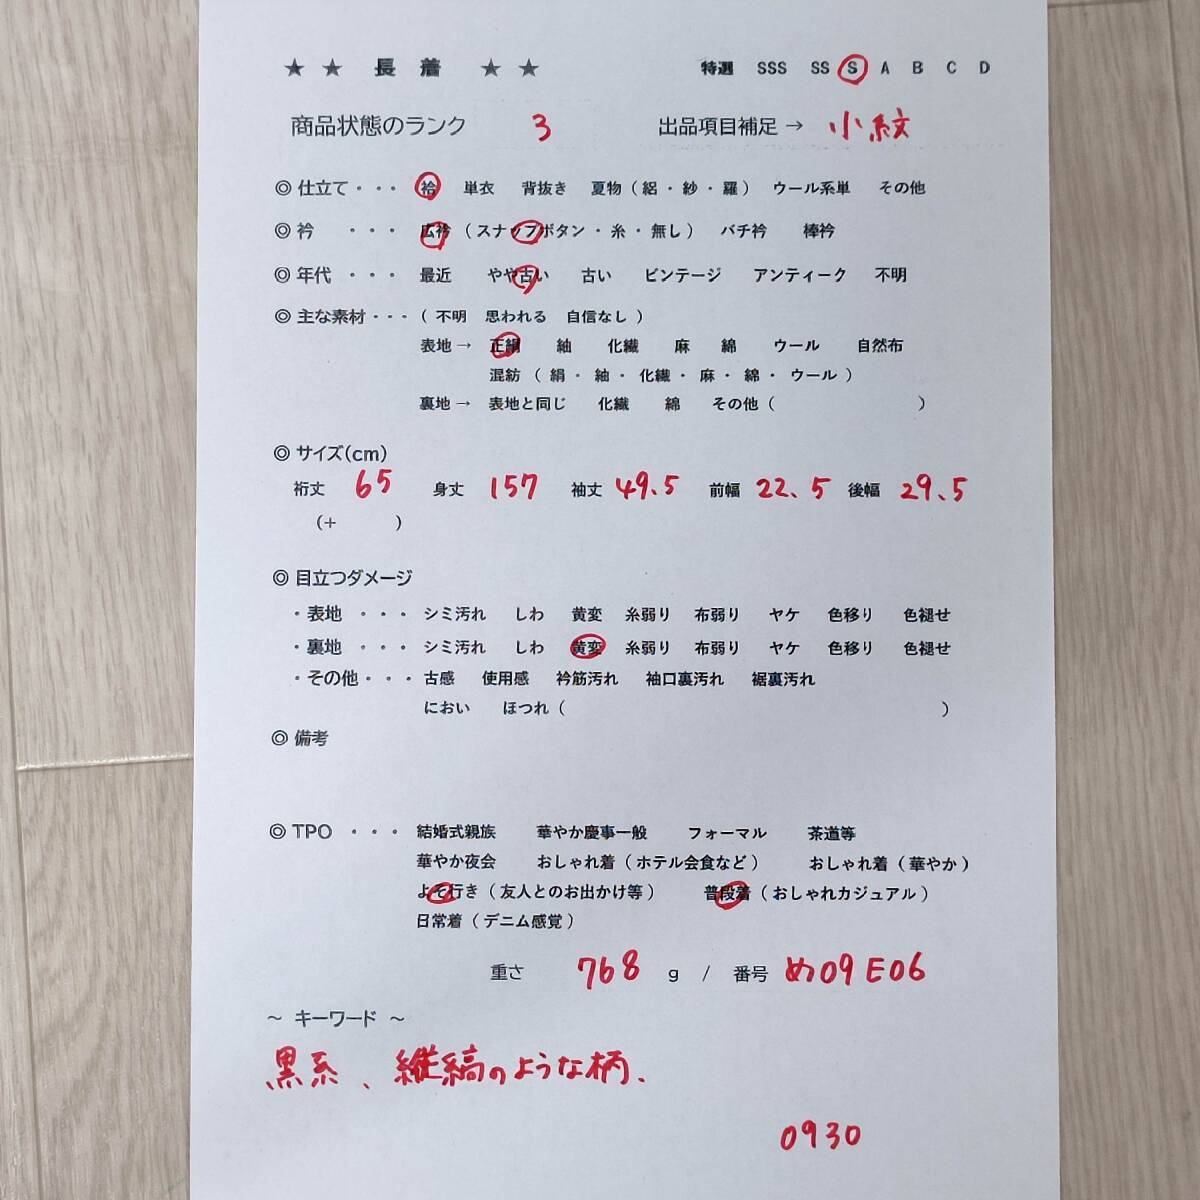 ★ ★ 長 着 ★ ★ 特選 SSS SS S A B C D
商品状態のランク 3 出品項目補足→ 小紋
◎ 仕立て・・・ 袷 単衣 背抜き 夏物(絽・紗・羅) ウール系単 その他
◎ 衿 ・・・ 広衿(スナップボタン・糸・無し) バチ衿 棒衿
◎ 年代 ・・・ 最近 やや古い 古い ビンテージ アンティーク 不明
◎ 主な素材・・・(不明 思われる 自信なし)
表地→ 正絹 紬 化繊 麻 綿 ウール 自然布
混紡(絹・紬・化繊・麻・綿・ウール)
裏地→ 表地と同じ 化繊 綿 その他( )
◎ サイズ(cm)
裄丈 65 身丈 157 袖丈 49.5 前幅 22.5 後幅 29.5
(+ )
◎ 目立つダメージ
・表地 ・・・ シミ汚れ しわ 黄変 糸弱り 布弱り ヤケ 色移り 色褪せ
・裏地 ・・・ シミ汚れ しわ 黄変 糸弱り 布弱り ヤケ 色移り 色褪せ
・その他・・・ 古感 使用感 衿筋汚れ 袖口裏汚れ 裾裏汚れ
におい ほつれ( )
◎ 備考
◎ TPO ・・・ 結婚式親族 華やか慶事一般 フォーマル 茶道等
華やか夜会 おしゃれ着(ホテル会食など) おしゃれ着(華やか)
よそ行き(友人とのお出かけ等) 普段着(おしゃれカジュアル)
日常着(デニム感覚)
重さ 768 g / 番号 め09E06
~ キーワード ~
黒系、縦縞のような柄.
0930